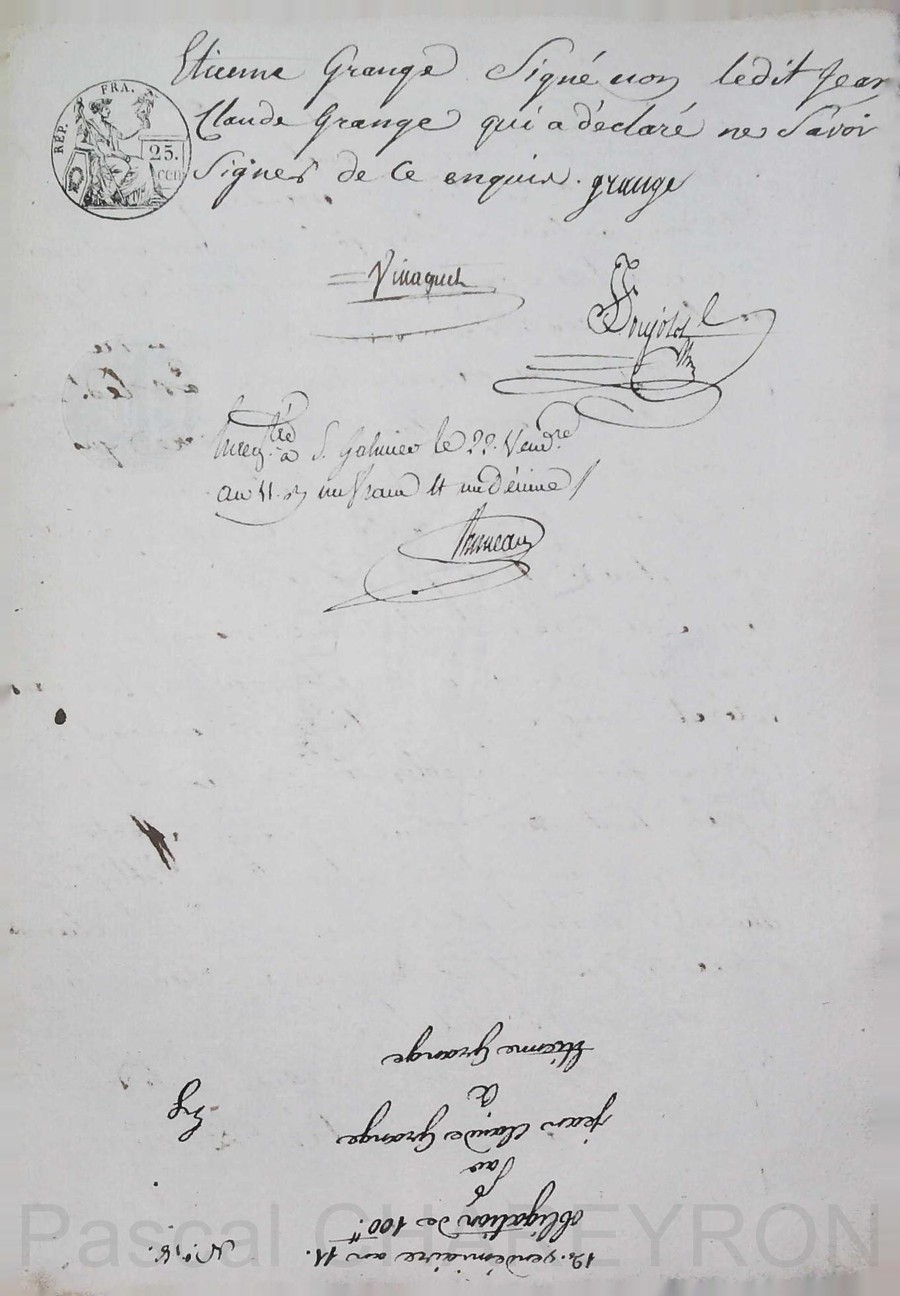 Etienne Grange Signé non ledit Jean
Claude Grange qui a déclaré ne Savoir
Signer de Ce enquis. grange
REP. FRA.
25.
cen
Enreg.tré à S. Galmier le 22. Vend.re
an 11. r. un franc et un décime
12. vendémiaire an 11.
N.o
obligation de 100
Par
jean Claude Grange
a
Etienne Grange
Pascal CHALEYRON